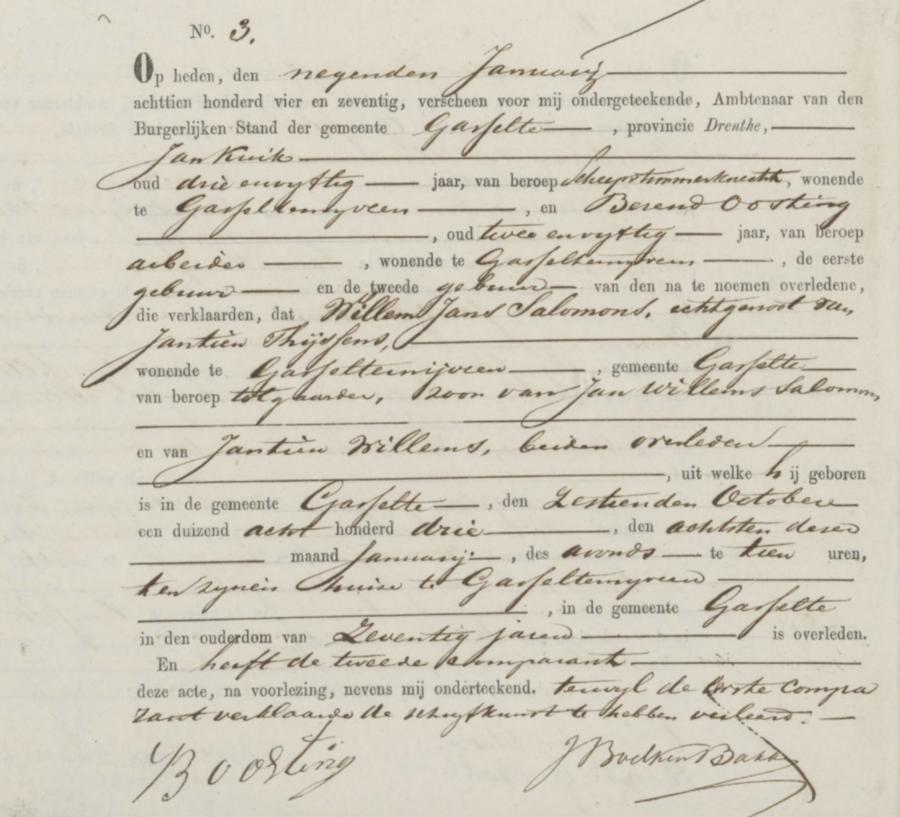 No. 3.
Op heden, den negenden Januarij
achttien honderd vier en zeventig, verscheen voor mij ondergeteekende, Ambtenaar van den
Burgerlijken Stand der gemeente Gasselte, provincie Drenthe,
Jan Kuik
oud drie envyftig jaar, van beroep Scheepstimmerknecht, wonende
te Gasselternyveen, en Berend Oosting
, oud twee envyftig jaar, van beroep
arbeider, wonende te Gasselternyveen, de eerste
gebuur en de tweede gebuur van den na te noemen overledene,
die verklaarden, dat Willem Jans Salomons, echtgenoot van
Jantien Thijssens,
wonende te Gasselternijveen, gemeente Gasselte
van beroep tolgaarder, zoon van Jan Willems Salomons
en van Jantien Willems, beiden overleden
, uit welke hij geboren
is in de gemeente Gasselte, den Zestienden October
een duizend acht honderd drie, den achtsten dezer
maand Januarij, des avonds te tien uren,
ten zynen huise te Gasselternyveen
, in de gemeente Gasselte
in den ouderdom van Zeventig jaren is overleden.
En heeft de tweede comparant
deze acte, na voorlezing, nevens mij onderteekend. terwyl de eerste compa
rant verklaarde de schryfkunst te hebben verleerd.
B Oosting
J Boelken Bakk